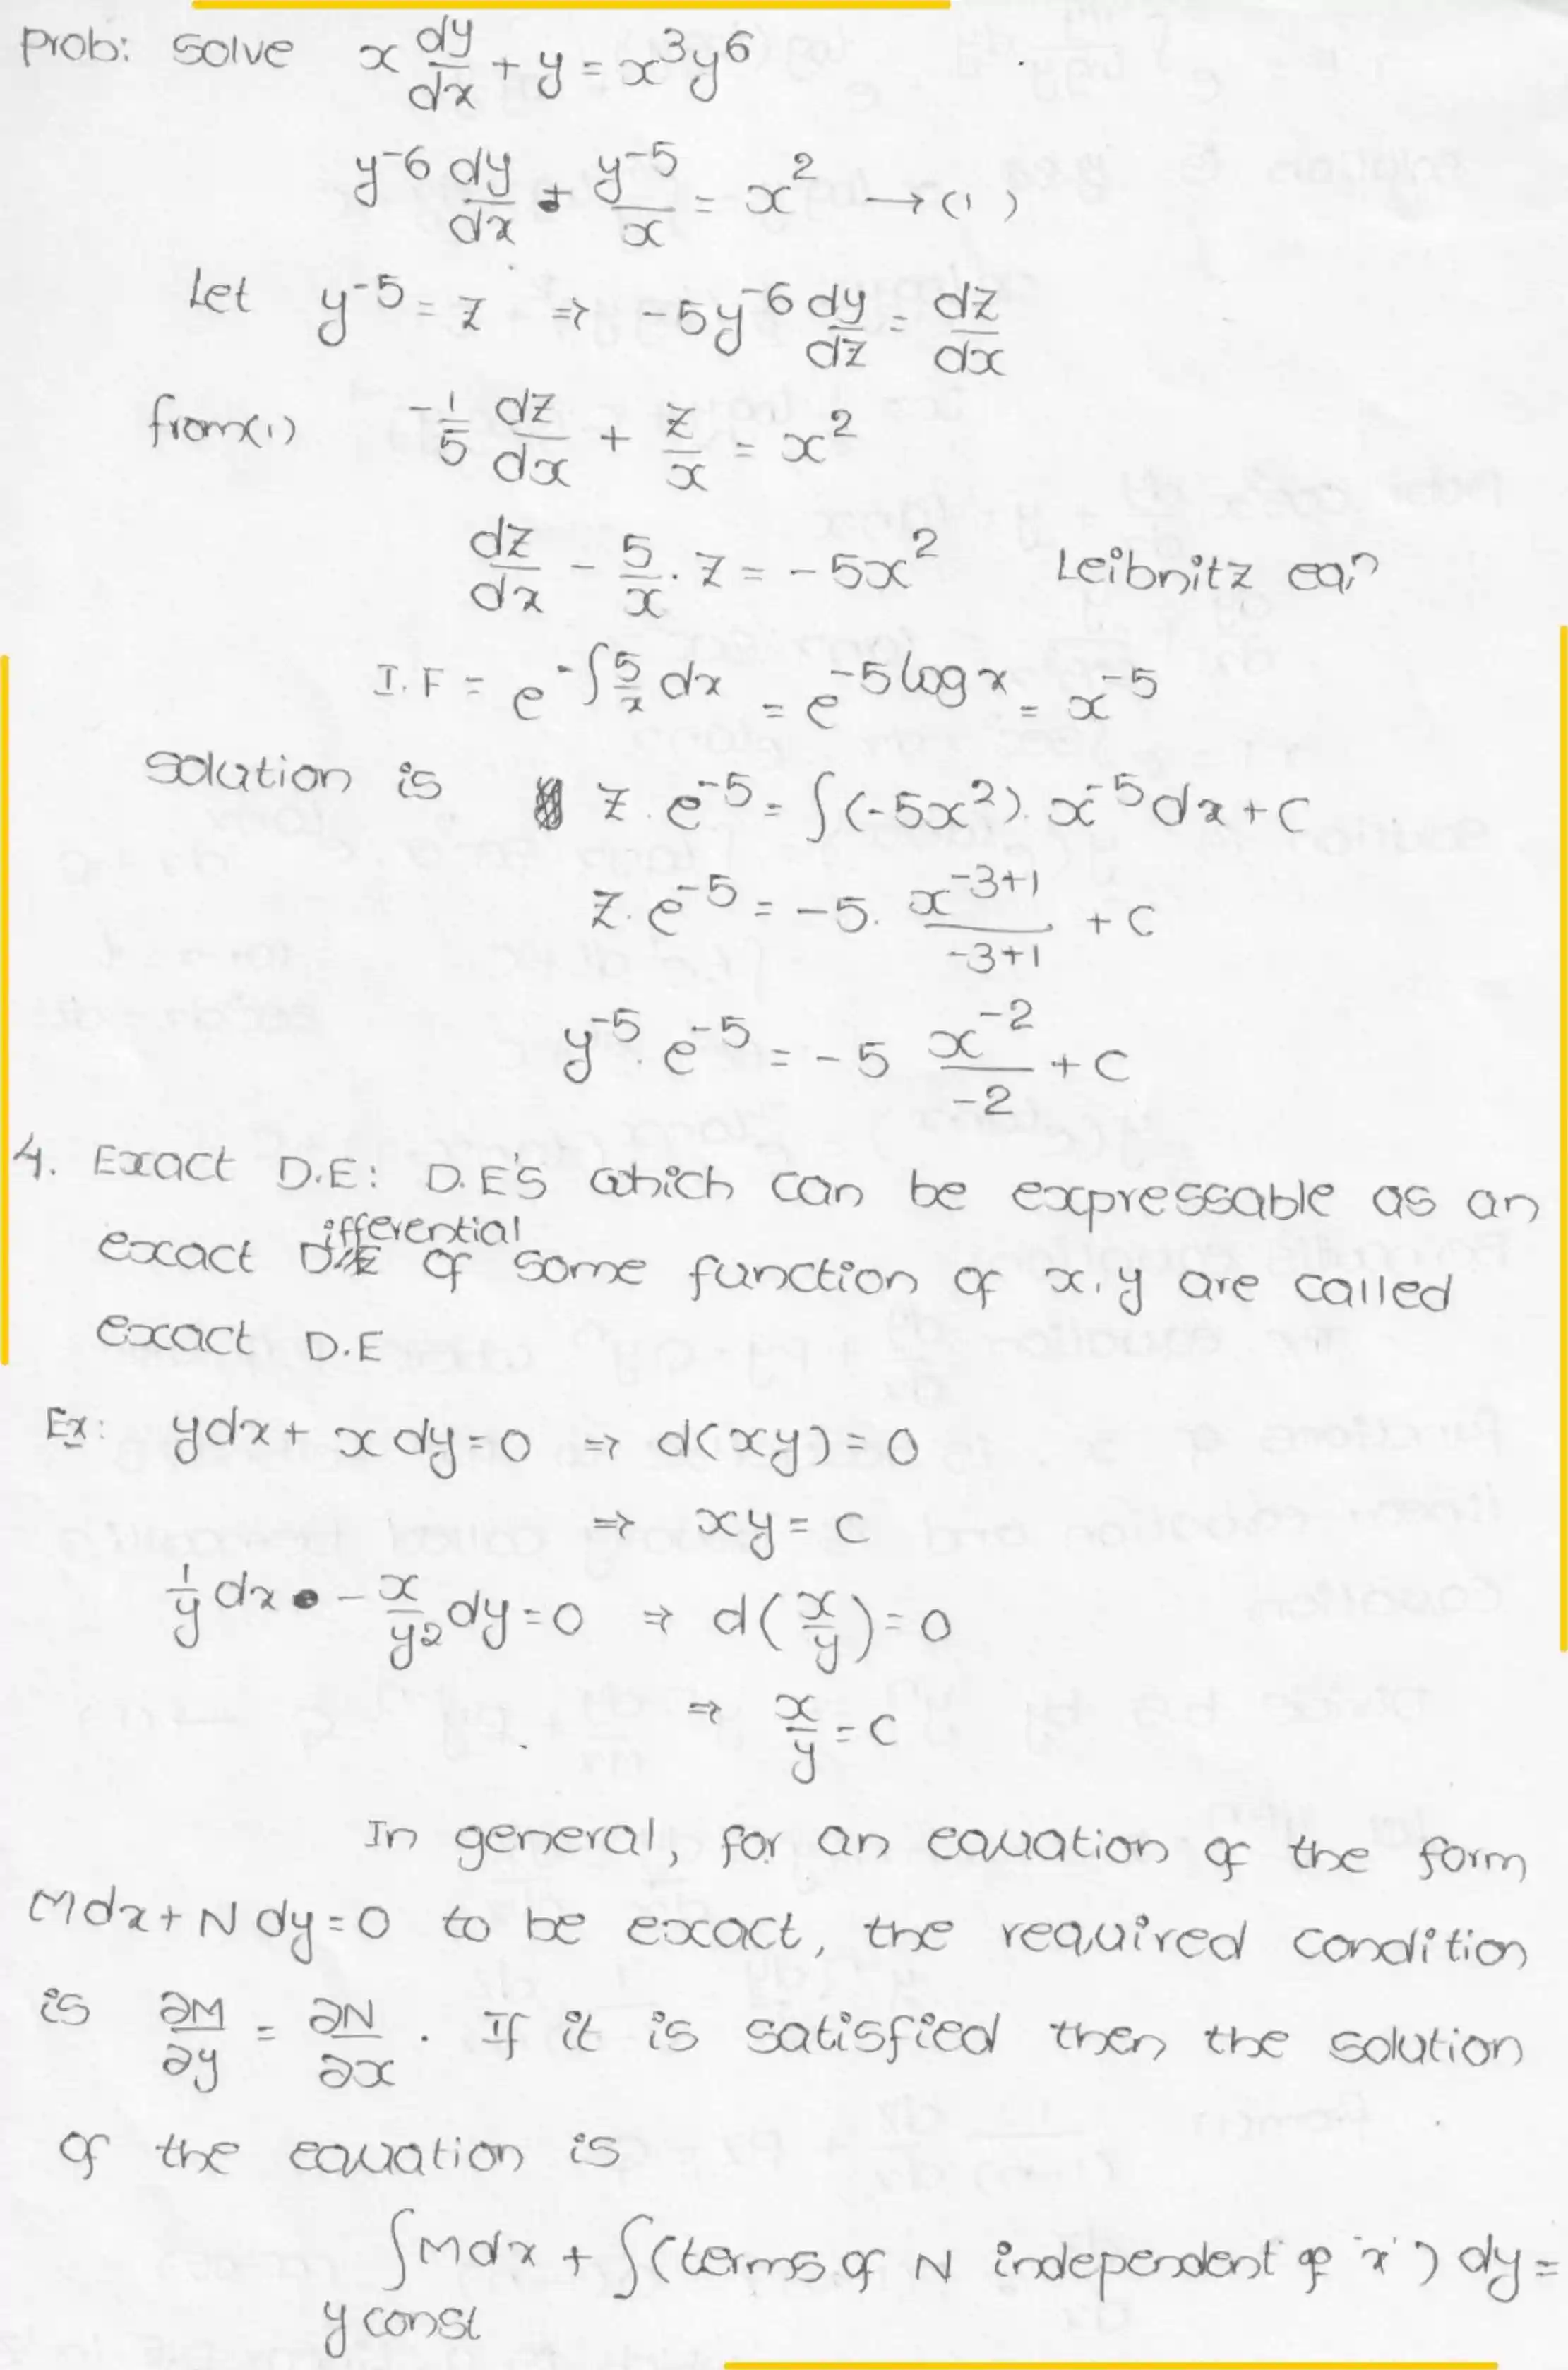 Prob: Solve x dy/dx + y = x³y⁶
y⁻⁶ dy/dx + y⁻⁵/x = x² → (1)
Let y⁻⁵ = z ⇒ -5y⁻⁶ dy/dz = dz/dx
from(1) -1/5 dz/dx + z/x = x²
dz/dx - 5/x . z = -5x² Leibnitz eqn
I.F = e^(-∫5/x dx) = e^(-5 log x) = x⁻⁵
Solution is z . e⁻⁵ = ∫(-5x²). x⁻⁵ dx + C
z. e⁻⁵ = -5. x^(-3+1)/(-3+1) + C
y⁻⁵. e⁻⁵ = -5 x⁻²/-2 + C
4. Exact D.E: D.E'S which can be expressable as an
exact Differential of some function of x, y are called
exact D.E
Ex: ydx + x dy = 0 ⇒ d(xy) = 0
⇒ xy = C
1/y dx - x/y² dy = 0 ⇒ d(x/y) = 0
⇒ x/y = C
In general, for an equation of the form
Mdx + N dy = 0 to be exact, the required condition
is ∂M/∂y = ∂N/∂x . If it is satisfied then the solution
of the equation is
∫Mdx + ∫(terms of N independent of 'x') dy =
y const